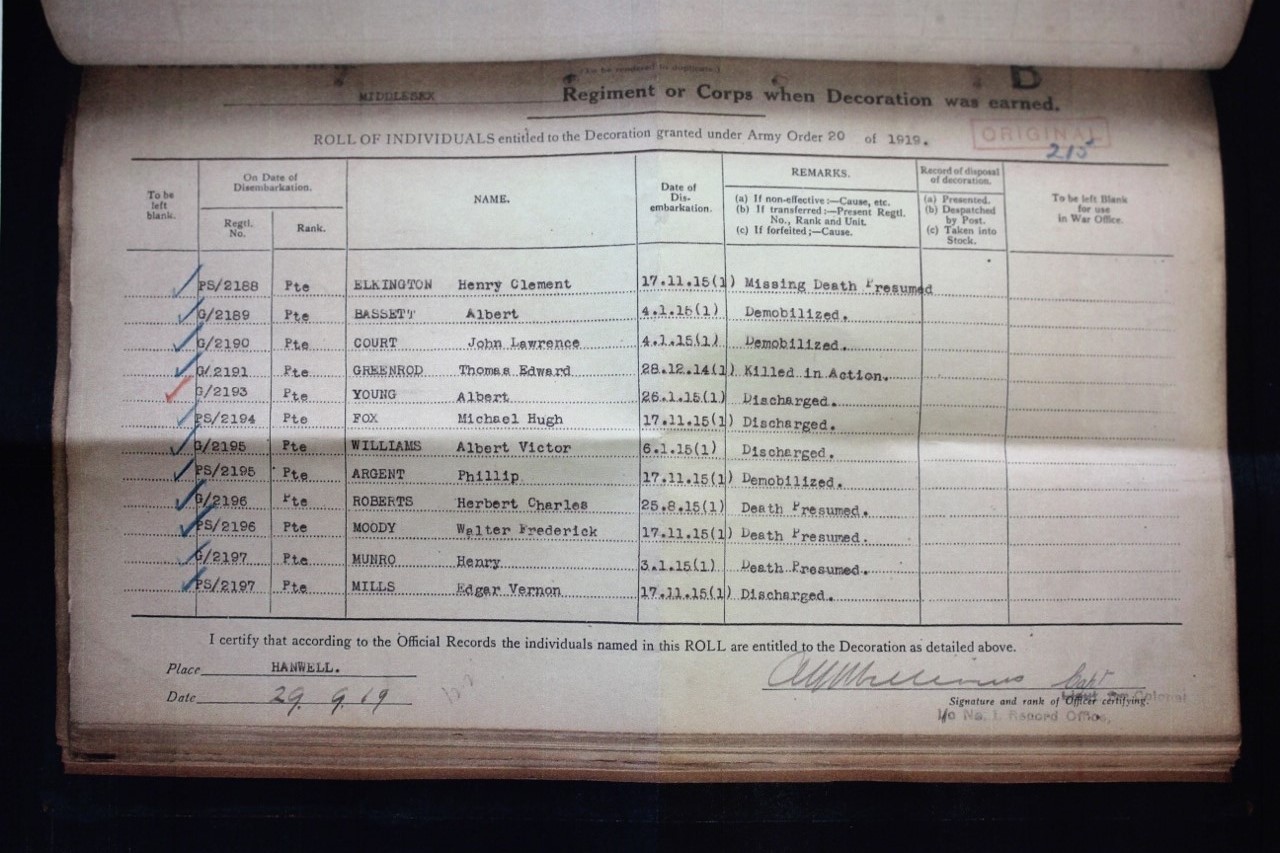 (To be rendered in duplicate.)
B
MIDDLESEX Regiment or Corps when Decoration was earned.
ROLL OF INDIVIDUALS entitled to the Decoration granted under Army Order 20 of 1919.
ORIGINAL
215
To be left blank.
On Date of Disembarkation.
Regtl. No.
Rank.
NAME.
Date of Dis-embarkation.
REMARKS.
(a) If non-effective:—Cause, etc.
(b) If transferred:—Present Regtl. No., Rank and Unit.
(c) If forfeited;—Cause.
Record of disposal of decoration.
(a) Presented.
(b) Despatched by Post.
(c) Taken into Stock.
To be left Blank for use in War Office.
PS/2188 Pte ELKINGTON Henry Clement 17.11.15(1) Missing Death Presumed
G/2189 Pte BASSETT Albert 4.1.15(1) Demobilized.
G/2190 Pte COURT John Lawrence 4.1.15(1) Demobilized.
G/2191 Pte GREENROD Thomas Edward 28.12.14(1) Killed in Action.
G/2193 Pte YOUNG Albert 26.1.15(1) Discharged.
PS/2194 Pte FOX Michael Hugh 17.11.15(1) Discharged.
G/2195 Pte WILLIAMS Albert Victor 6.1.15(1) Discharged.
PS/2195 Pte ARGENT Phillip 17.11.15(1) Demobilized.
G/2196 Pte ROBERTS Herbert Charles 25.8.15(1) Death Presumed.
PS/2196 Pte MOODY Walter Frederick 17.11.15(1) Death Presumed.
G/2197 Pte MUNRO Henry 3.1.15(1) Death Presumed.
PS/2197 Pte MILLS Edgar Vernon 17.11.15(1) Discharged.
I certify that according to the Official Records the individuals named in this ROLL are entitled to the Decoration as detailed above.
Place HANWELL.
Date 29.9.19
Capt
Signature and rank of Officer certifying.
i/c No. 1. Record Office,